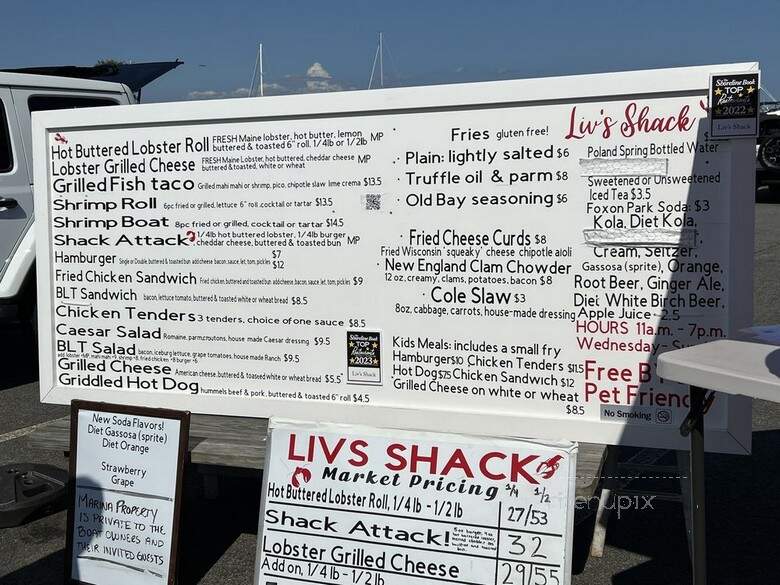 Hot Buttered Lobster Roll FRESH Maine lobster, hot butter, lemon
buttered & toasted 6" roll. 1/4lb or 1/2lb MP
Lobster Grilled Cheese FRESH Maine Lobster, hot buttered, cheddar cheese
buttered & toasted, white or wheat MP
Grilled Fish taco Grilled mahi mahi or shrimp, pico, chipotle slaw lime crema $13.5
Shrimp Roll 6pc fried or grilled, lettuce 6" roll, cocktail or tartar $13.5
Shrimp Boat 8pc fried or grilled, cocktail or tartar $14.5
Shack Attack 1/4lb hot buttered lobster, 1/4lb burger
cheddar cheese, buttered & toasted bun MP
Hamburger Single or Double, buttered & toasted bun add cheese bacon, sauce, let, tom, pickles $7
$12
Fried Chicken Sandwich Fried chicken, buttered and toasted bun add cheese bacon, sauce, let, tom, pickles $9
BLT Sandwich bacon, lettuce tomato, buttered & toasted white or wheat bread $8.5
Chicken Tenders 3 tenders, choice of one sauce $8.5
Caesar Salad Romaine, parm, croutons, house made Caesar dressing $9.5
BLT Salad bacon, iceberg lettuce, grape tomatoes, house made Ranch $9.5
Grilled Cheese American cheese, buttered & toasted white or wheat bread $5.5
Griddled Hot Dog hummels beef & pork, buttered & toasted 6" roll $4.5
The Shoreline Book
TOP
Restaurants
2023
Liv's Shack
Fries gluten free!
Plain: lightly salted $6
Truffle oil & parm $8
Old Bay seasoning $6
Fried Cheese Curds $8
Fried Wisconsin 'squeaky' cheese chipotle aioli
New England Clam Chowder
12 oz, creamy, clams, potatoes, bacon $8
Cole Slaw $3
8oz, cabbage, carrots, house-made dressing
Kids Meals: includes a small fry
Hamburger $10 Chicken Tenders $11.5
Hot Dog $7.5 Chicken Sandwich $12
Grilled Cheese on white or wheat
$8.5
Liv's Shack
The Shoreline Book
TOP
Restaurants
2022
Liv's Shack
Poland Spring Bottled Water
Sweetened or Unsweetened
Iced Tea $3.5
Foxon Park Soda: $3
Kola, Diet Kola,
Cream, Seltzer,
Gassosa (sprite), Orange,
Root Beer, Ginger Ale,
Diet White Birch Beer,
Apple Juice 2.5
HOURS 11a.m. - 7p.m.
Wednesday -
Free
Pet Frien
No Smoking
New Soda Flavors!
Diet Gassosa (sprite)
Diet Orange
Strawberry
Grape
MARINA PROPERTY
IS PRIVATE TO THE
BOAT OWNERS AND
THEIR INVITED GUESTS
LIVS SHACK
Market Pricing 1/4 1/2
Hot Buttered Lobster Roll, 1/4 lb - 1/2 lb 27/53
Shack Attack! 32
Lobster Grilled Cheese 29/55
Add on, 1/4 lb - 1/2 lb
menupix